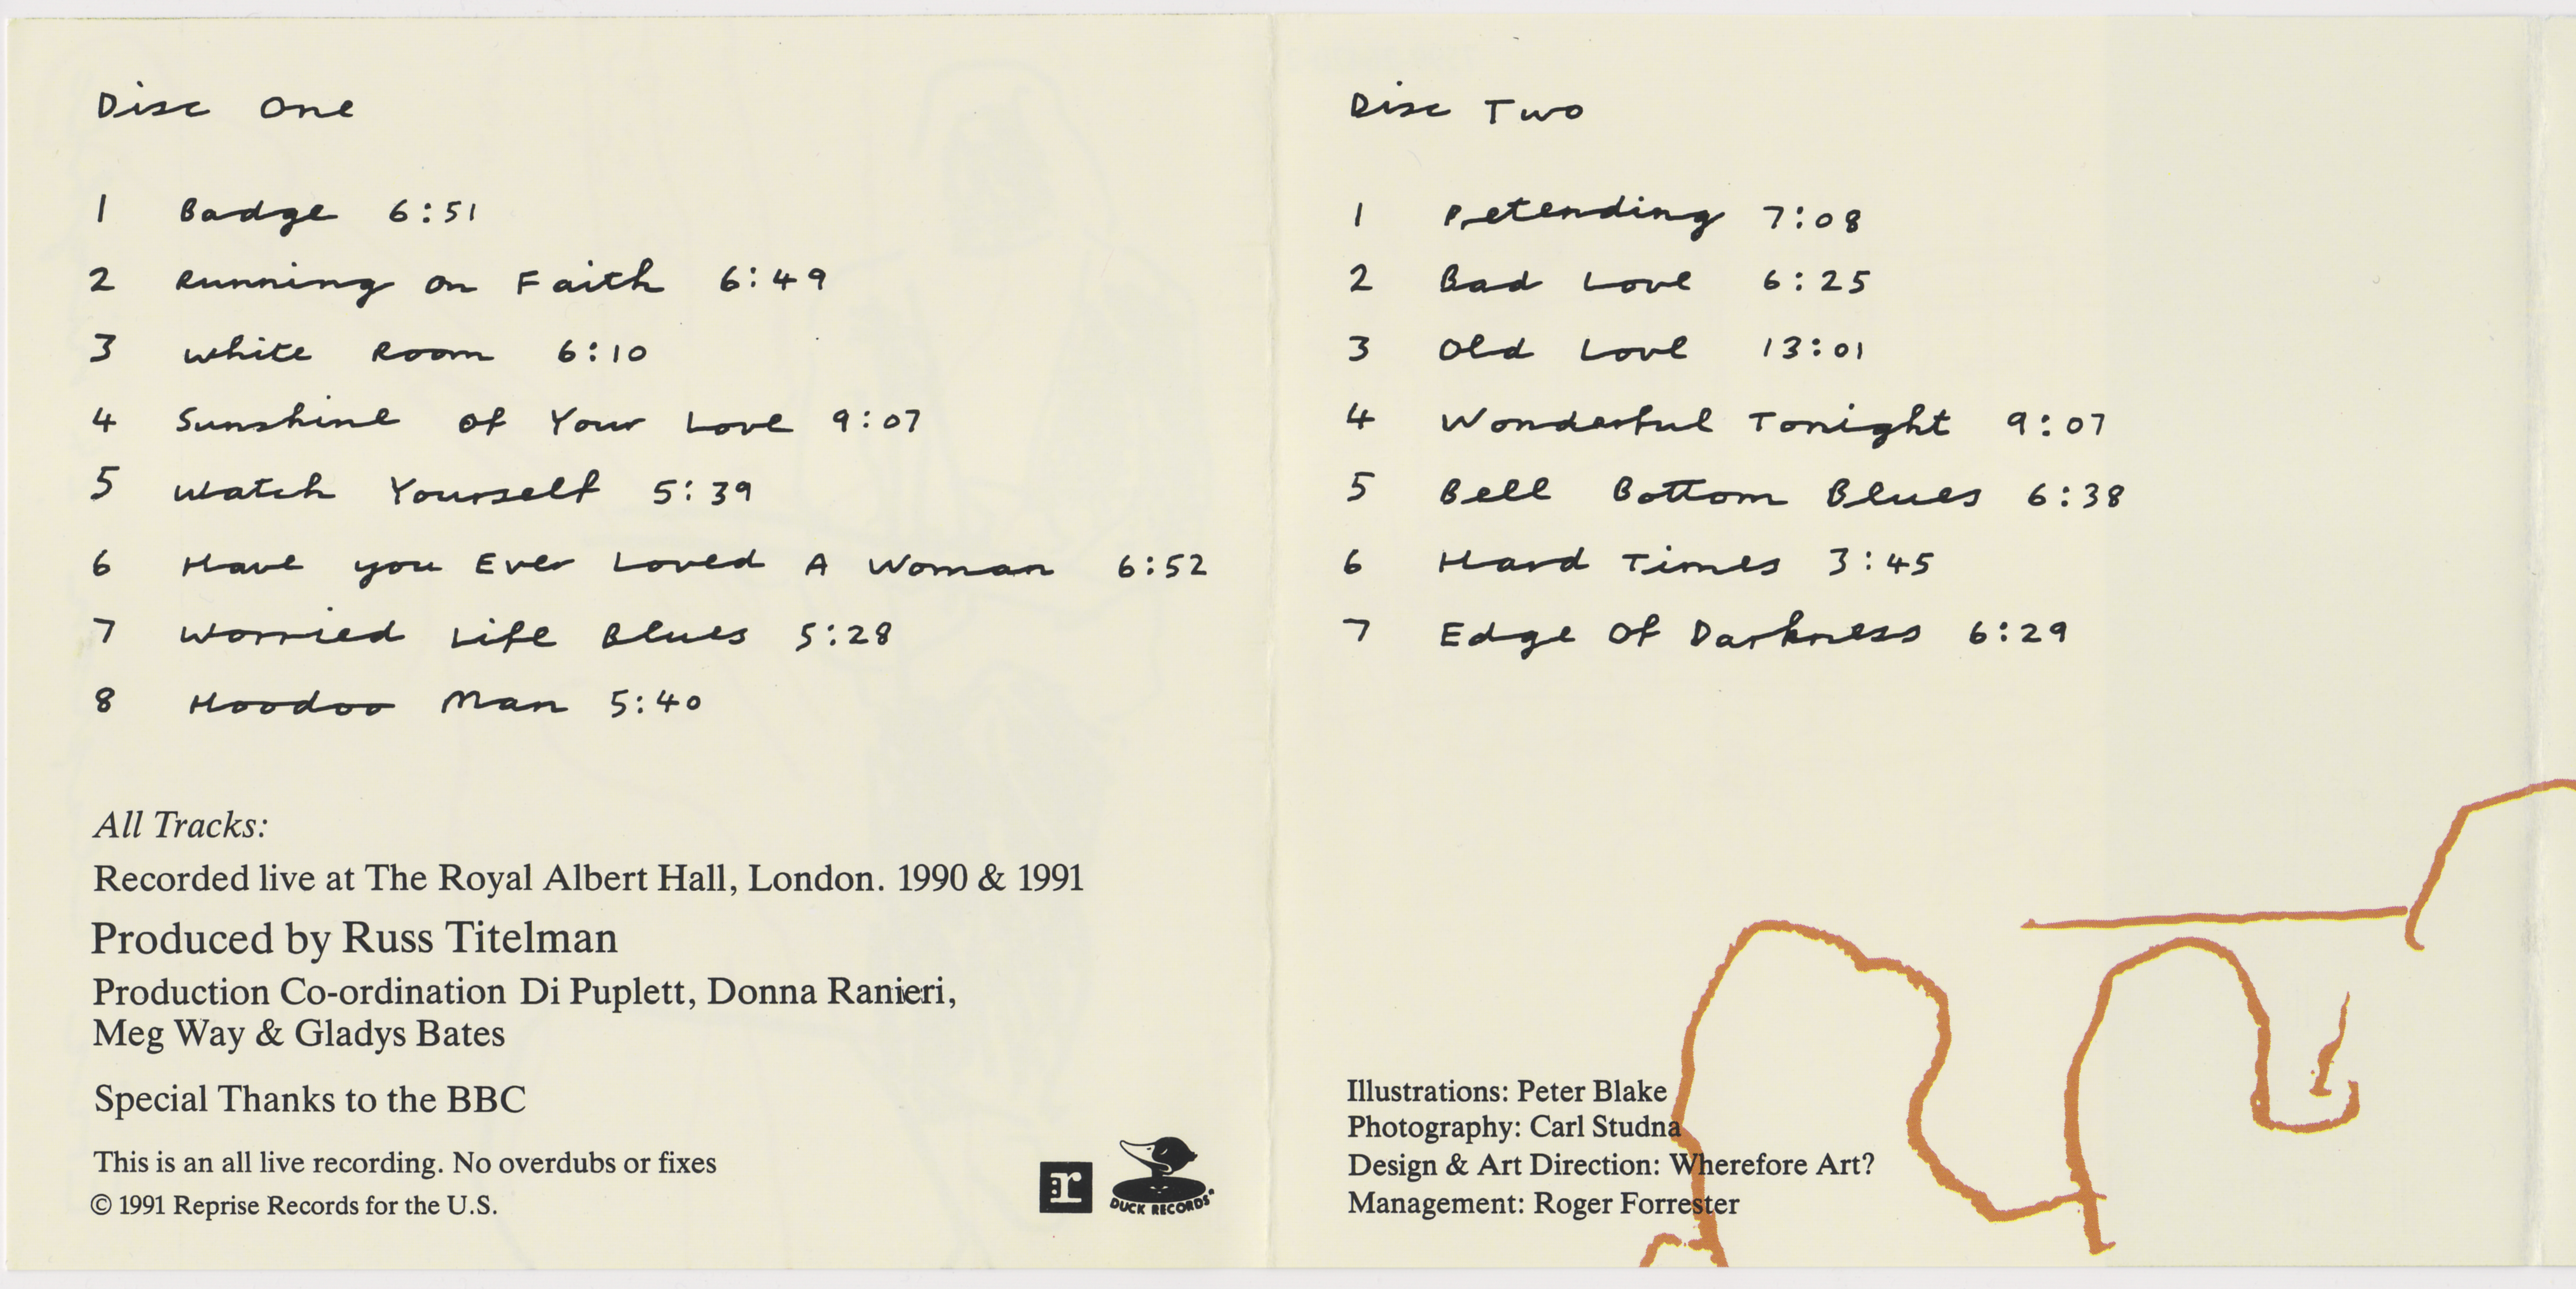 Disc One
1 Badge 6:51
2 Running on Faith 6:49
3 White Room 6:10
4 Sunshine of Your Love 9:07
5 Watch Yourself 5:39
6 Have you Ever Loved A Woman 6:52
7 Worried Life Blues 5:28
8 Hoodoo Man 5:40
All Tracks:
Recorded live at The Royal Albert Hall, London. 1990 & 1991
Produced by Russ Titelman
Production Co-ordination Di Puplett, Donna Ranieri,
Meg Way & Gladys Bates
Special Thanks to the BBC
This is an all live recording. No overdubs or fixes
© 1991 Reprise Records for the U.S.
:r
DUCK RECORDS
Disc Two
1 Pretending 7:08
2 Bad Love 6:25
3 Old Love 13:01
4 Wonderful Tonight 9:07
5 Bell Bottom Blues 6:38
6 Hard Times 3:45
7 Edge Of Darkness 6:29
Illustrations: Peter Blake
Photography: Carl Studna
Design & Art Direction: Wherefore Art?
Management: Roger Forrester